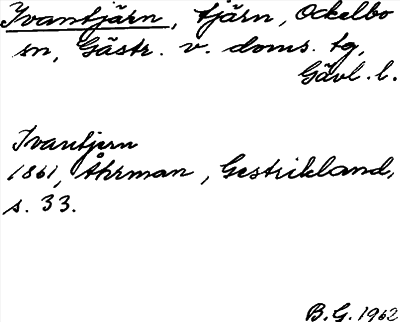 Ivantjärn, tjärn, Ockelbo
sn, Gästr. v. doms. tg,
Gävl. l.
Ivantjern
1861, Åhrman, Gestrikland,
s. 33.
B.G. 1962